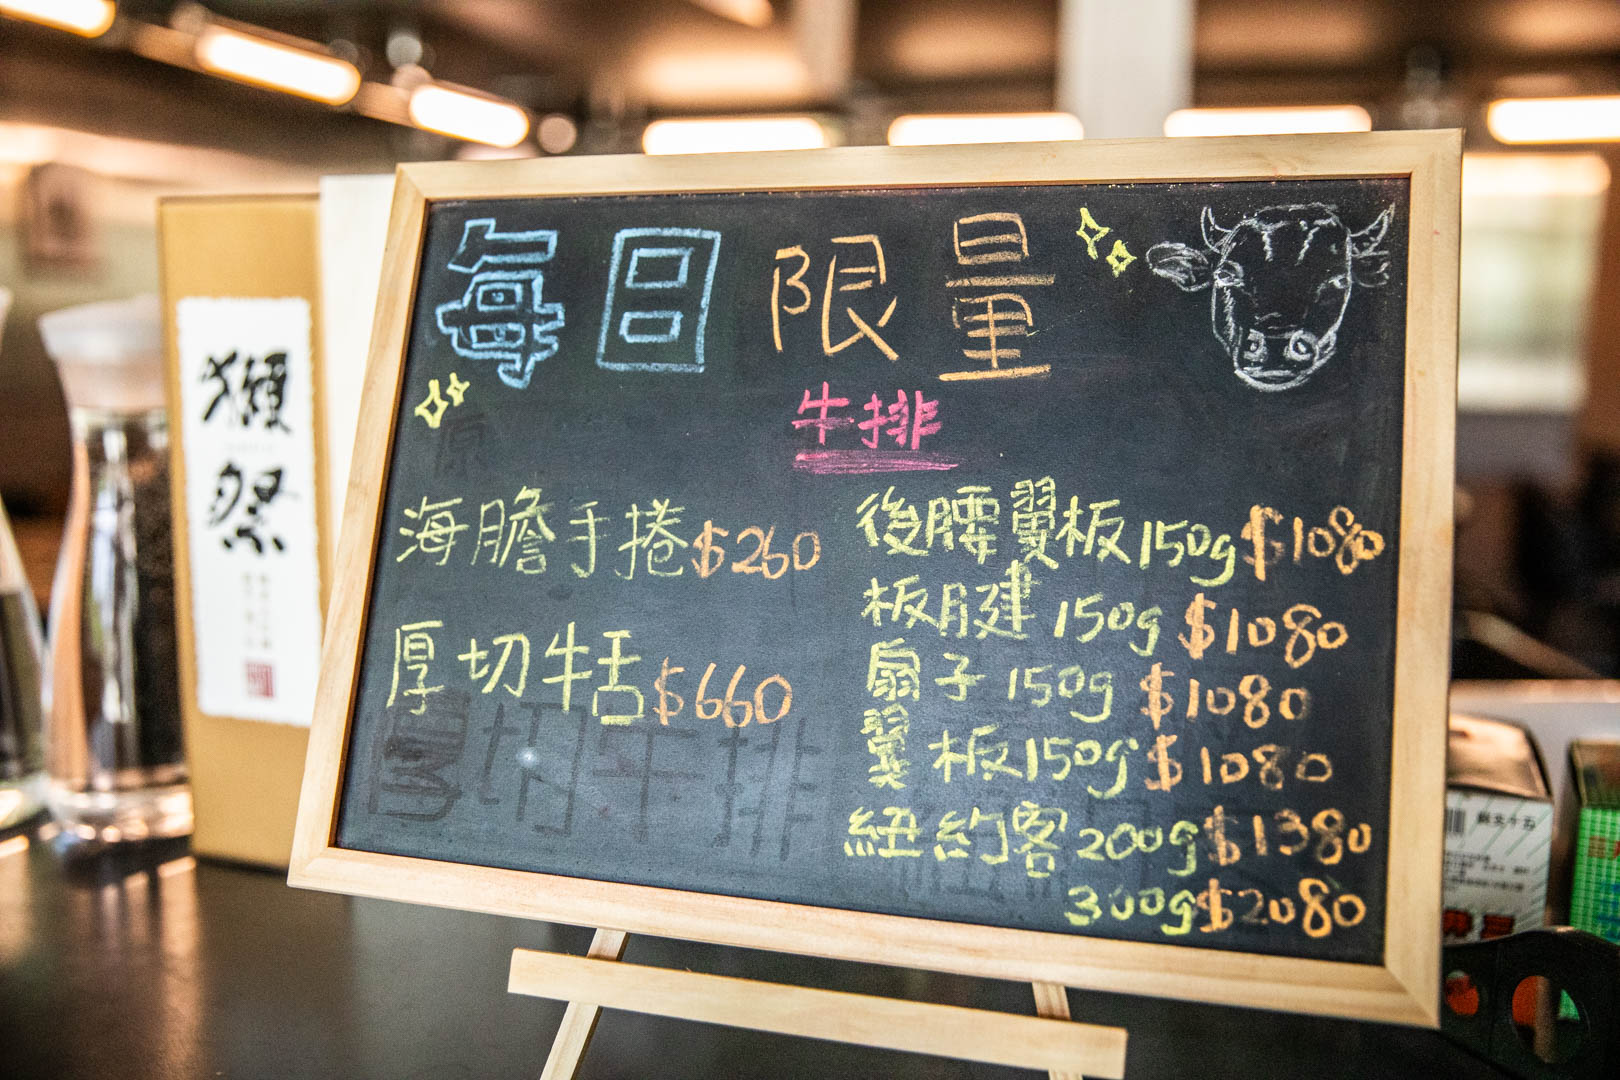 每日限量
牛排
海膽手捲$260
厚切牛舌$660
後腰翼板150g$1080
板腱150g$1080
扇子150g$1080
翼板150g$1080
紐約客200g$1380
300g$2080
獺祭